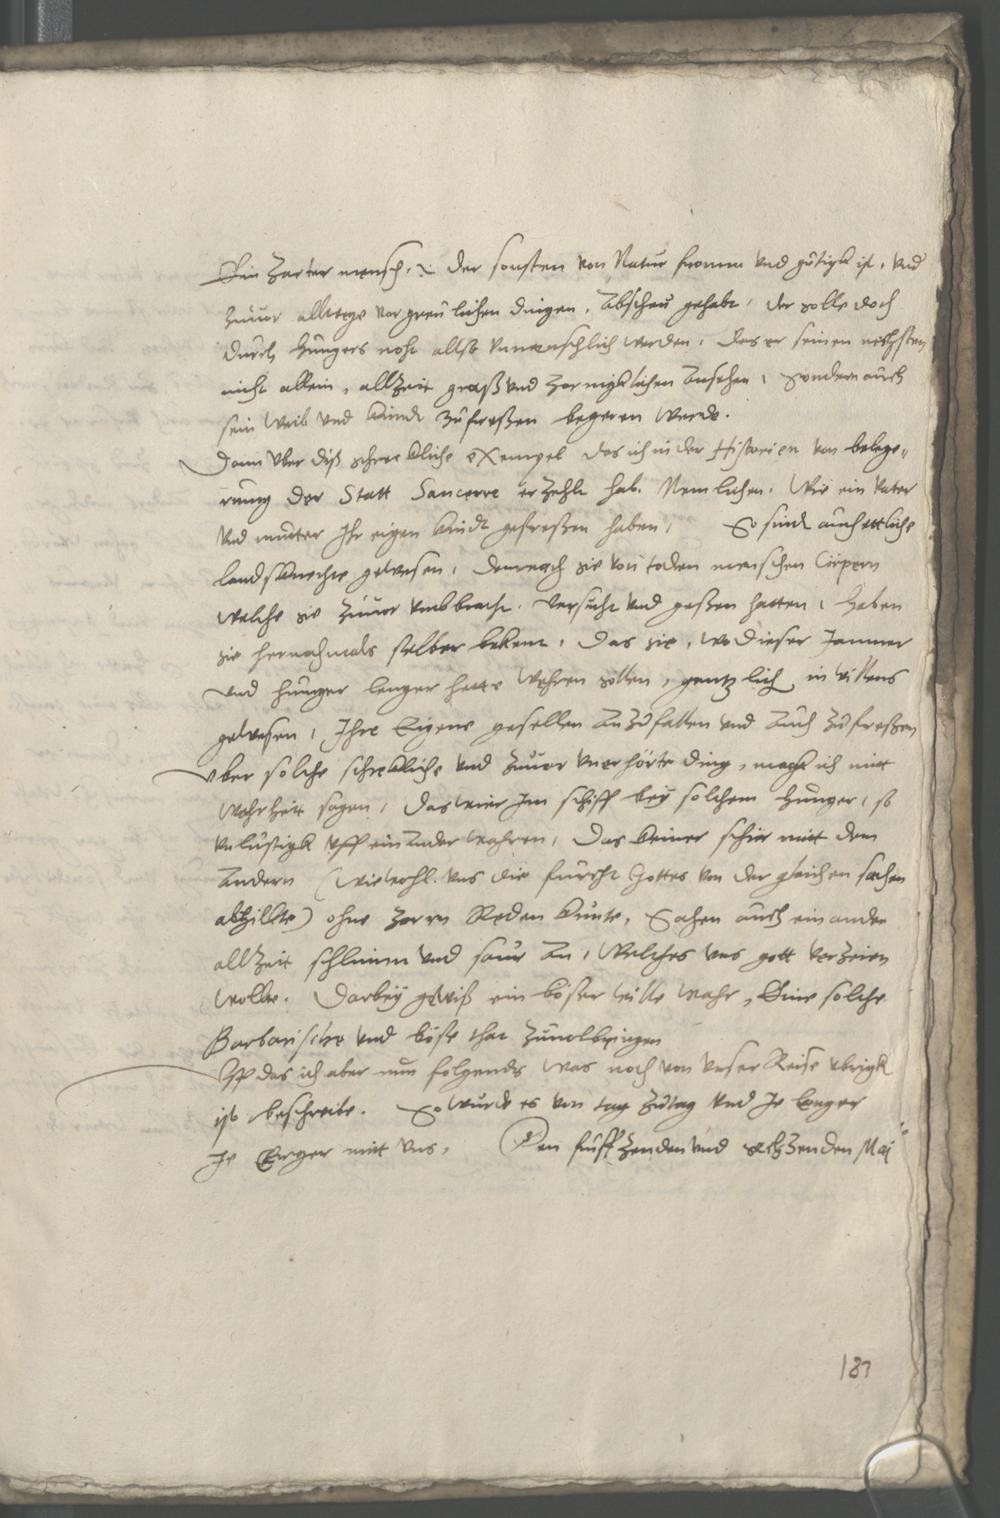 Ein Zarter mensch, der sonsten von Natur fromm vnd gütigk ist, vnd
Zuuor allwege vor greulichen dingen, Abscheu gehabt, der solle doch
durch hungers noht allso vnmenschlich werden, das er seinen nechsten
nicht allein, allzeit graß vnd zornigklichen Ansehen, sondern auch
sein Weib vnd kindt zufreßen begeren werde.
Dann vber diß schreckliche exempel das ich in der Historien von belege„
rung der Statt Sancerre erzehlt hab. Nemlichen, Wie ein Vater
vnd mutter Ihr eigen kindt gefreßen haben, So sindt auch ettliche
landsknechte gewesen, demnach sie von toden menschen Cörpern
welche sie zuuor vmbbracht, versucht vnd geßen hatten, haben
sie hernachmals selber bekent, das sie, wo dieser Jammer
vnd hunger lenger hette Wehren sollen, gentzlich in willens
gewesen, Ihre Eigene gesellen Anzufallen vnd Auch zufreßen
vber solche schrekliche vnd zuuor vnerhörte ding, magk ich mitt
Wahrheit sagen, das wir Im schiff bey solchem hunger, so
vnlustigk vff einander wahren, das keiner schir mitt dem
Andern (wiewohl vns die furcht Gottes von der gleichen sachen
abhillte) ohne Zorn Reden kunte, Sahen auch ein ander
allzeit schlimm vnd saur An, Welches vns gott verzeien
wolle. Darbey gewiß ein böser wille wahr, Eine solche
Barbarische vnd böse that zuuolbringen
Vff das ich aber nun folgends was noch von vnser Reise vbrigk
ist beschreibe. So wurde es von tag zutag vnd Je lenger
Je Erger mitt vns, Den fuffzenden vnd sechzenden Maij
187